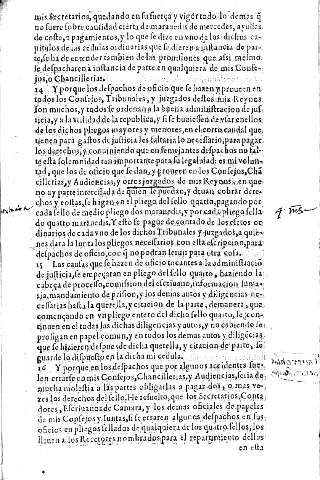 mis Secretarios, quedando en su fuerça y vigor todo lo demas q̃
no fuere sobre cantidad cierta de maravedis de mercedes, ayudas
de costa, y pagamientos, y lo que se dize en uno de los dichos ca-
pitulos de las cedulas ordinarias que se dieren a instancia de par-
te, se ha de entender tambien de las provisiones que assi mesmo
se despacharen a instancia de parte en qualquiera de mis Conse-
jos, o Chancillerias.
14 Y porque los despachos de oficio que se hazen y proueen en
todos los Consejos, Tribunales, y juzgados destos mis Reynos
son muchos, y todos se ordenan a la buena administracion de jus-
ticia, y a la vtilidad de la republica, y si se huuiessen de vsar en ellos
de los dichos pliegos mayores y menores, en el corto caudal que
tienen para gastos de justicia les faltaria lo necessario, para pagar
los derechos, y conuiniendo que en semejantes despachos no fal-
te esta solemnidad tan importante para su legalidad: es mi volun-
tad, que los de oficio que se dan, y proueen en los Consejos, Chã
cillerias, y Audiencias, y otros juzgados de mis Reynos, en que
no ay parte interessada de quien se puedan, y deuan cobrar dere-
chos y costas, se hagan en el pliego del sello quarto, pagando por
cada sello de medio pliego dos marauedis, y por cada pliego sella
do quatro marauedis. Y esto se pague por cuenta de los gastos or-
dinarios de cada vno de los dichos Tribunales y juzgados, a quie-
nes dará la junta los pliegos necessarios con esta escripcion, para
despachos de oficio, con q̃ no podran seruir para otra cosa.
15 Las causas que se hazen de oficio tocantes a la administraciõ
de justicia, se empeçarán en pliego del sello quarto, haziendo la
cabeça de processo, comission del escriuano, informacion suma-
ria, mandamiento de prision, y los demas autos y diligencias ne-
cessarias hasta la querella, y citacion de la parte, demanera, que
començando en vn pliego entero del dicho sello quarto, se con-
tinuen en el todas las dichas diligencias y autos, y no cabiendo se
prosigan en papel comun, y en todos los demas autos y diligẽcias
que se hizieren despues de dicha querella, y citacion de parte, se
guarde lo dispuesto en la dicha mi cedula.
16 Y porque en los despachos que por algunos accidentes sue-
len errarse en mis Consejos, Chancillerias, y Audiencias, seria de
mucha molestia a las partes obligarlas a pagar dos, o mas ve-
zes los derechos del sello, He resuelto, que los Secretarios, Conta
dores, Escriuanos de Camara, y los demas oficiales de papeles
de mis Consejos y Juntas, si se erraren algunos despachos en sus
oficios en pliegos sellados de qualquiera de los quatro sellos, los
lleuen a los Receptores nombrados para el repartimiento dellos
en esta